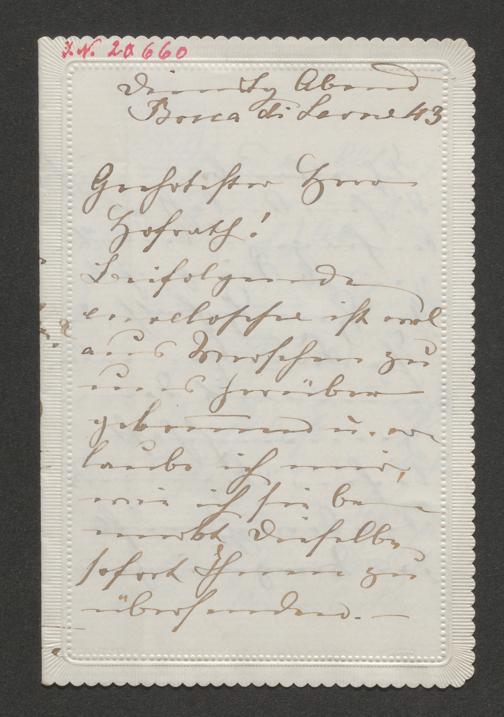 I.N. 20660
Dienstag Abend
Bocca di Leone 43
Geehrtester Herr
Hofrath!
Beifolgende
enveloppe ist wol
aus Versehen zu
uns herüber
gekommen u. er
laube ich mir,
wie ich sie be
merkt dieselbe
sofort Ihnen zu
übersenden. —